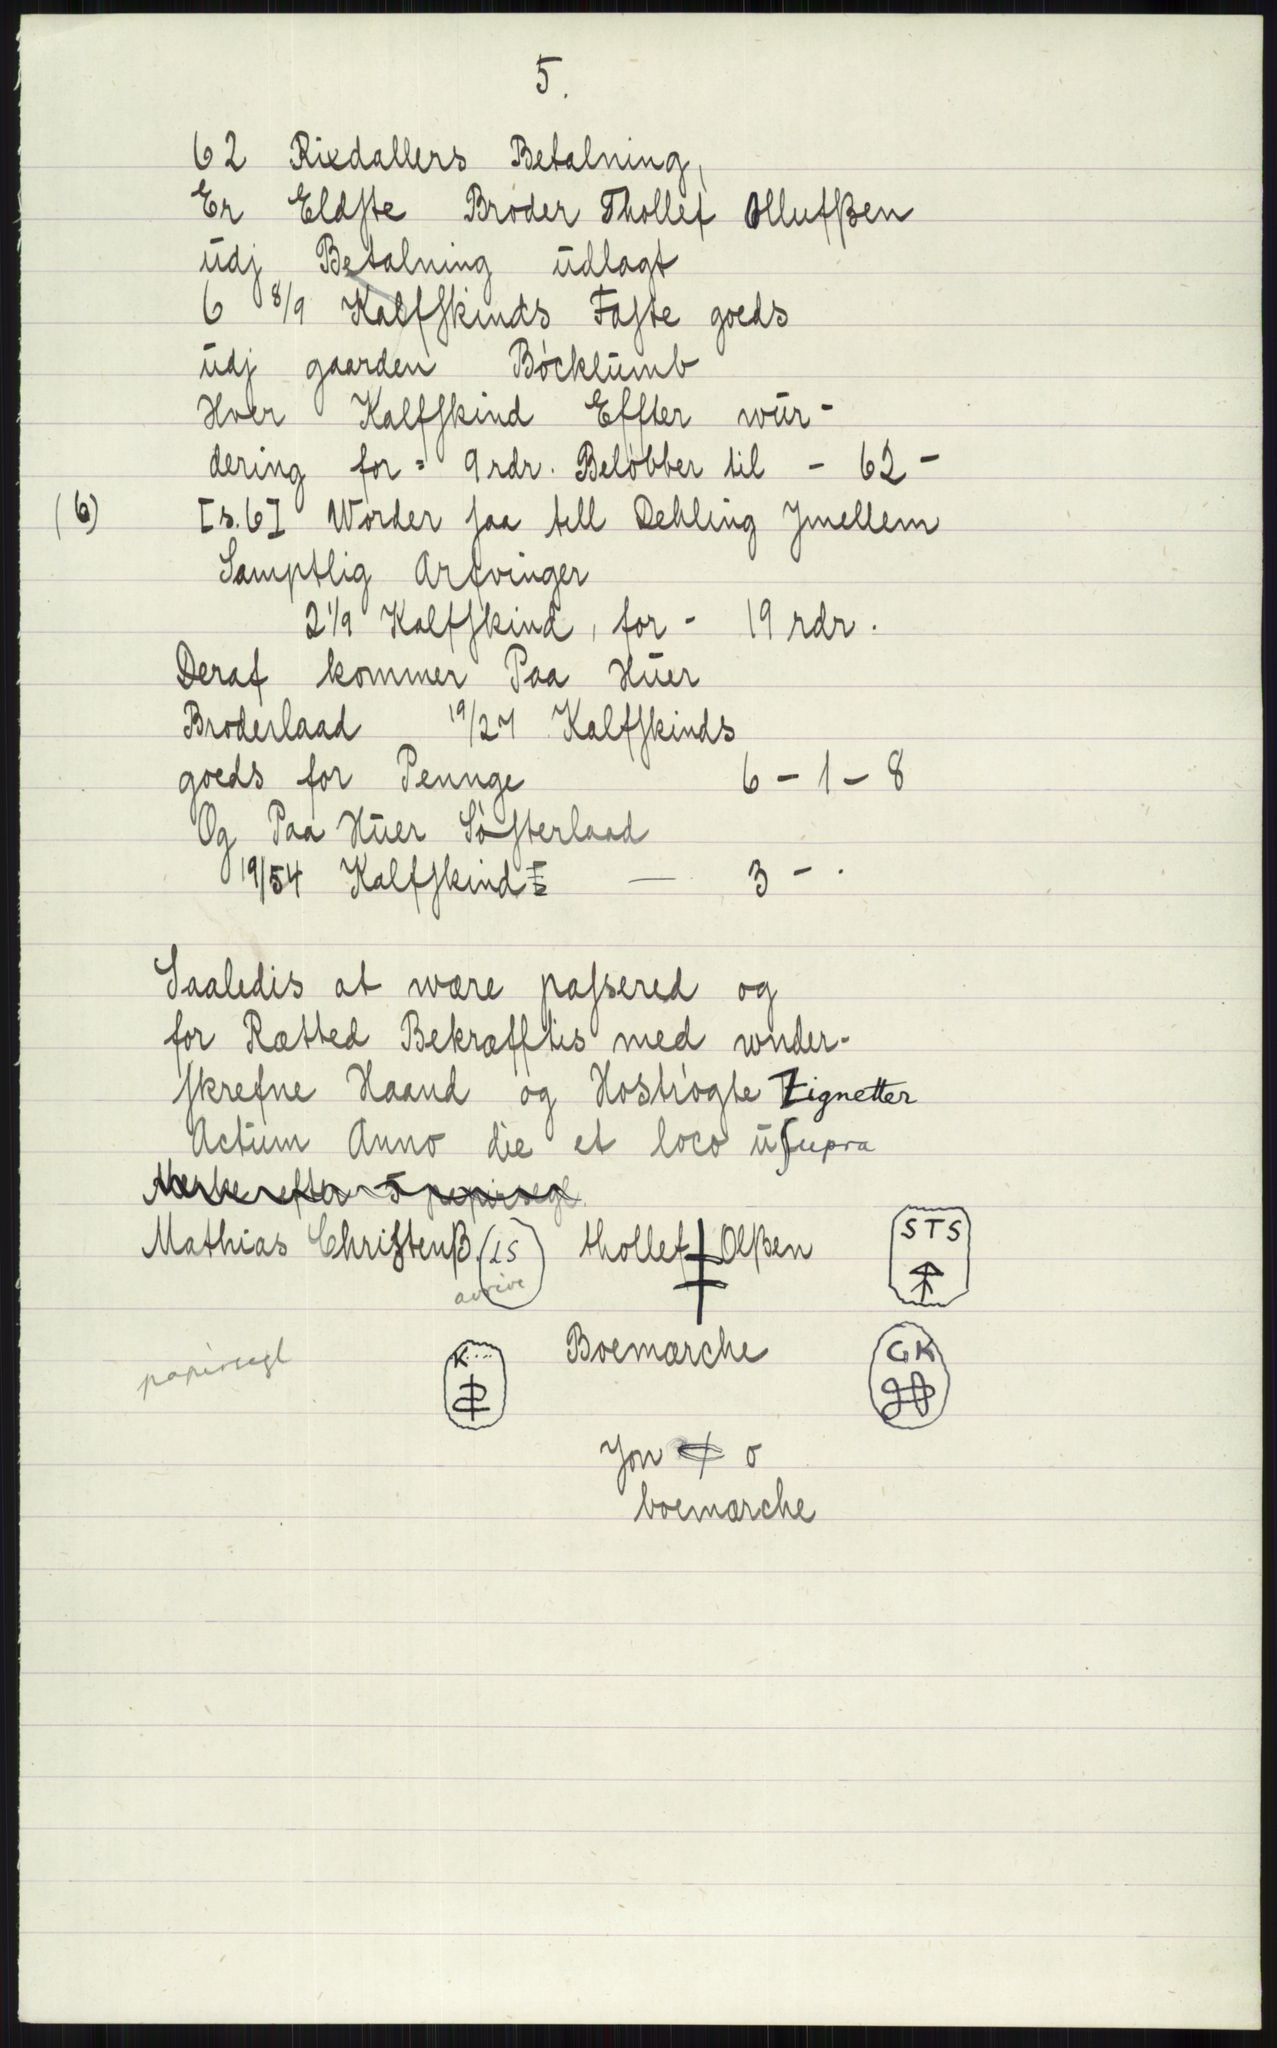 5.
62 Rixdallers Betalning,
Er Eldſte Broder Thollef Ollufßen
ŭdj Betalning ŭdlagt
6 8/9 Kalfſkinds Faſte goeds
ŭdj gaarden Böcklŭmb
Hver Kalfſkind Effter wŭr-
dering for = 9 rdr. Belöbber til - 62 -
(6) [s. 6] Worder ſaa till Dehling Jmellem
Samptlig Arfvinger
2 1/9 Kalfſkind, for - 19 rdr.
Deraf kommer Paa Hŭer
Broderlaad 19/27 Kalfſkinds
goeds for Pennge 6 - 1 - 8
Og Paa Hŭer Söſterlaad
19/54 Kalfſkinds — 3 - .
Saaledis at wære paſsered og
for Rætted Bekræfftis med wnder-
ſkrefne Haand og Hoströgte Zignetter
Actŭm Anno die et loco ŭſupra
Merke efter 5 papirsegl.
Mathias Chriſtenß. LS thollef Olßen STS
avrive
K... Boemærche GK
papirsegl
Jon o
boemærche